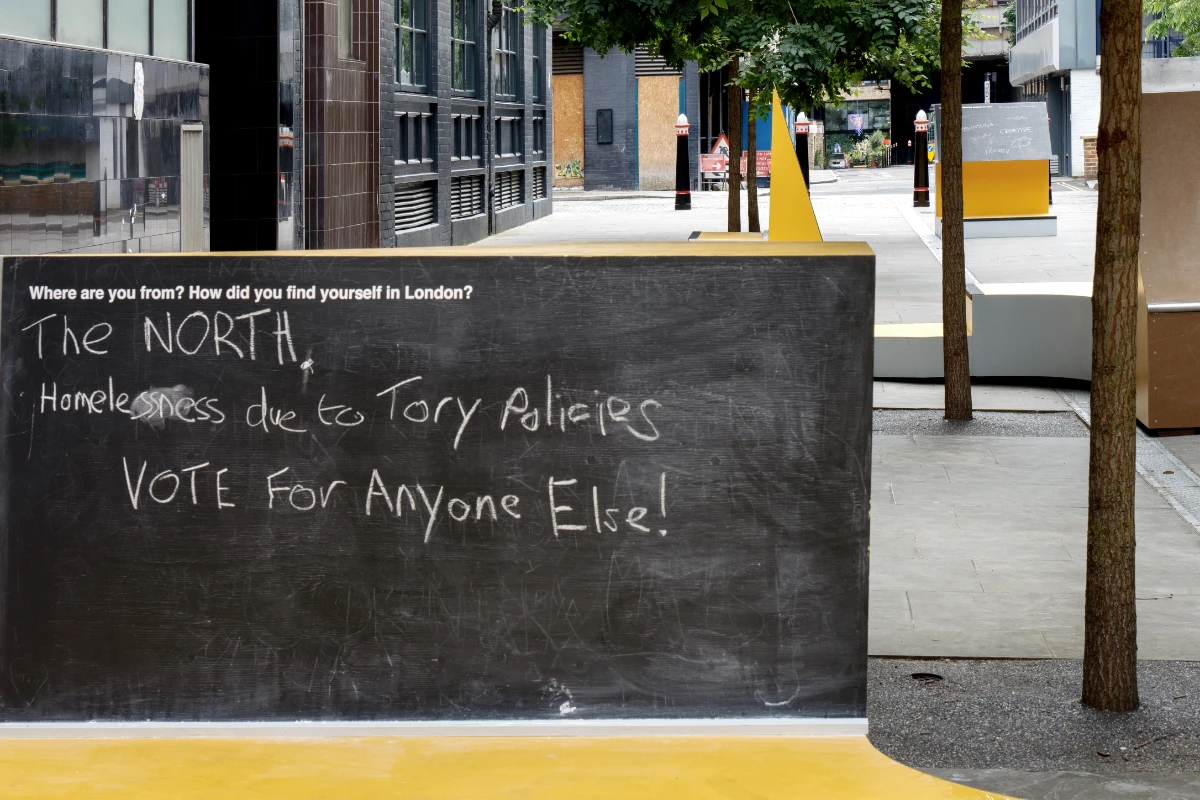 Where are you from? How did you find yourself in London?
The NORTH,
Homelessness due to Tory Policies
VOTE For Anyone Else!